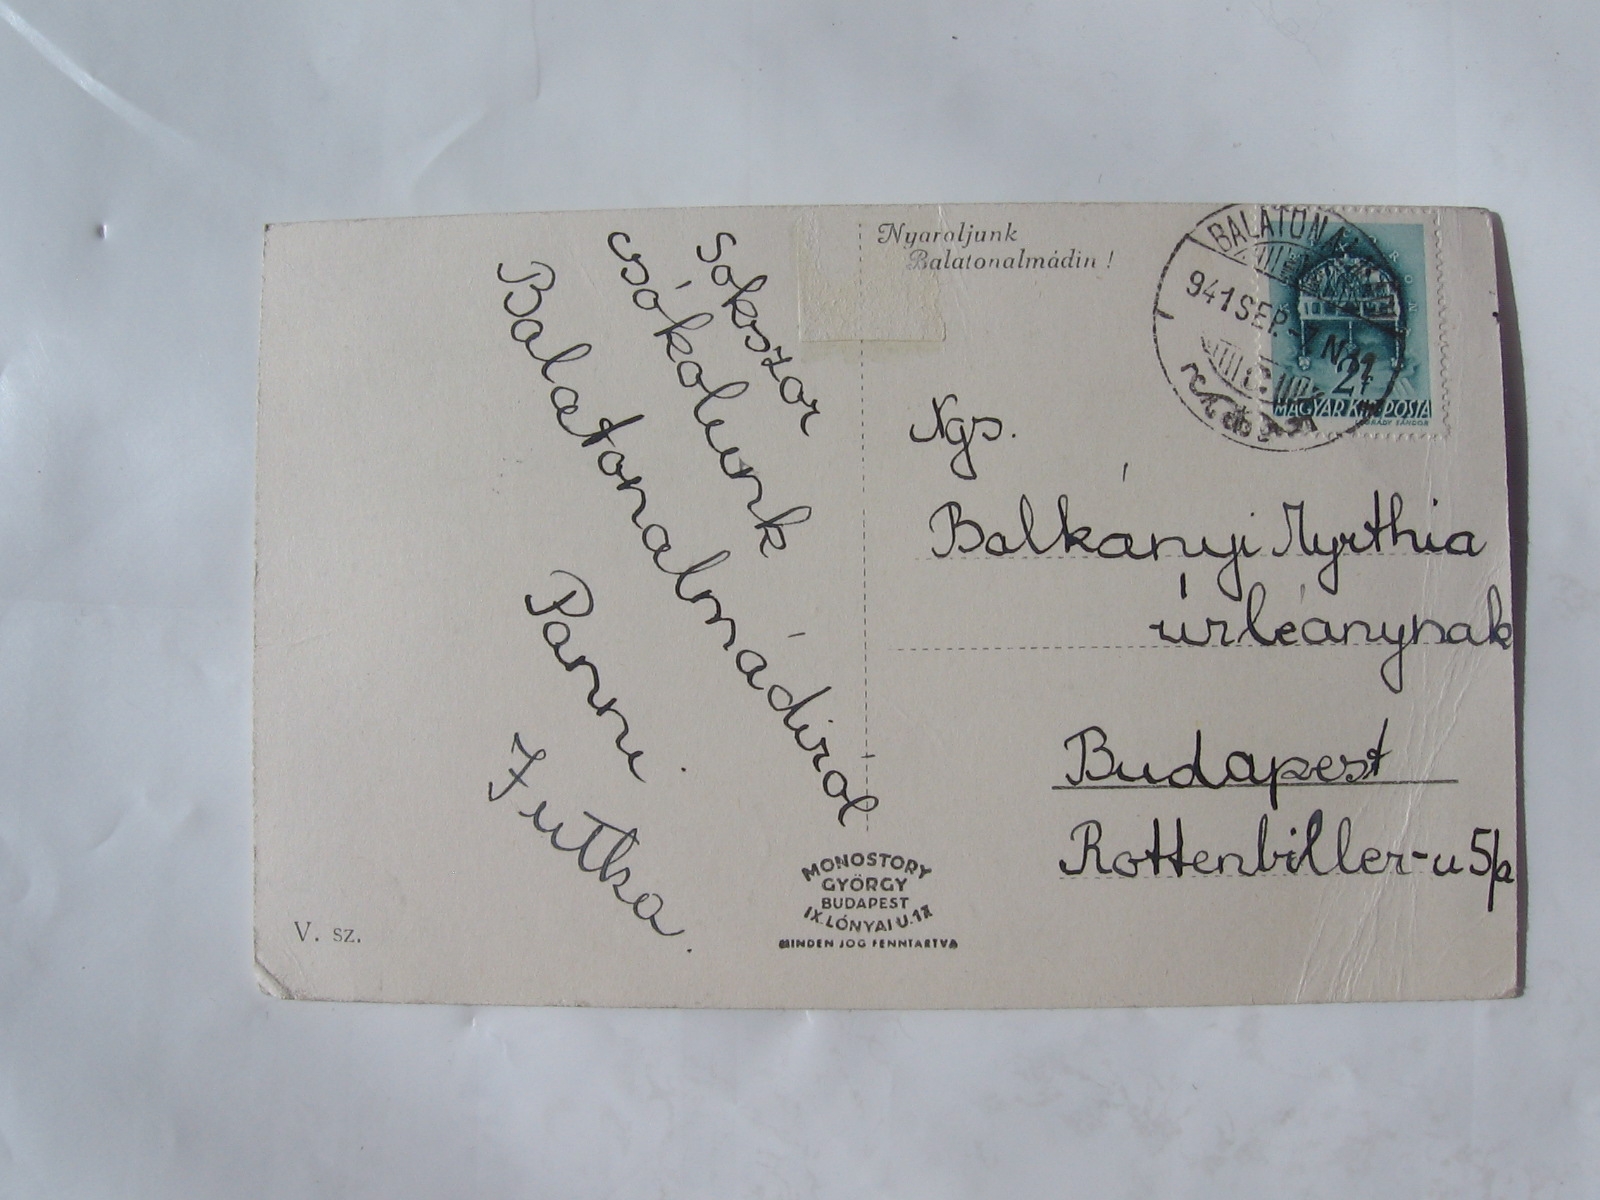 Nyaraljunk
Balatonalmádin !
BALATON
941 SEP.
24
MAGYAR KIR. POSTA
Sokszor
csókolunk
Balatonalmádiról
Panni
Jutka.
Ngs.
Balkányi Myrthia
úrleánynak
Budapest
Rottenbiller-u 5/a
MONOSTORY
GYÖRGY
BUDAPEST
IX. LÓNYAI U. 17
MINDEN JOG FENNTARTVA
V. sz.